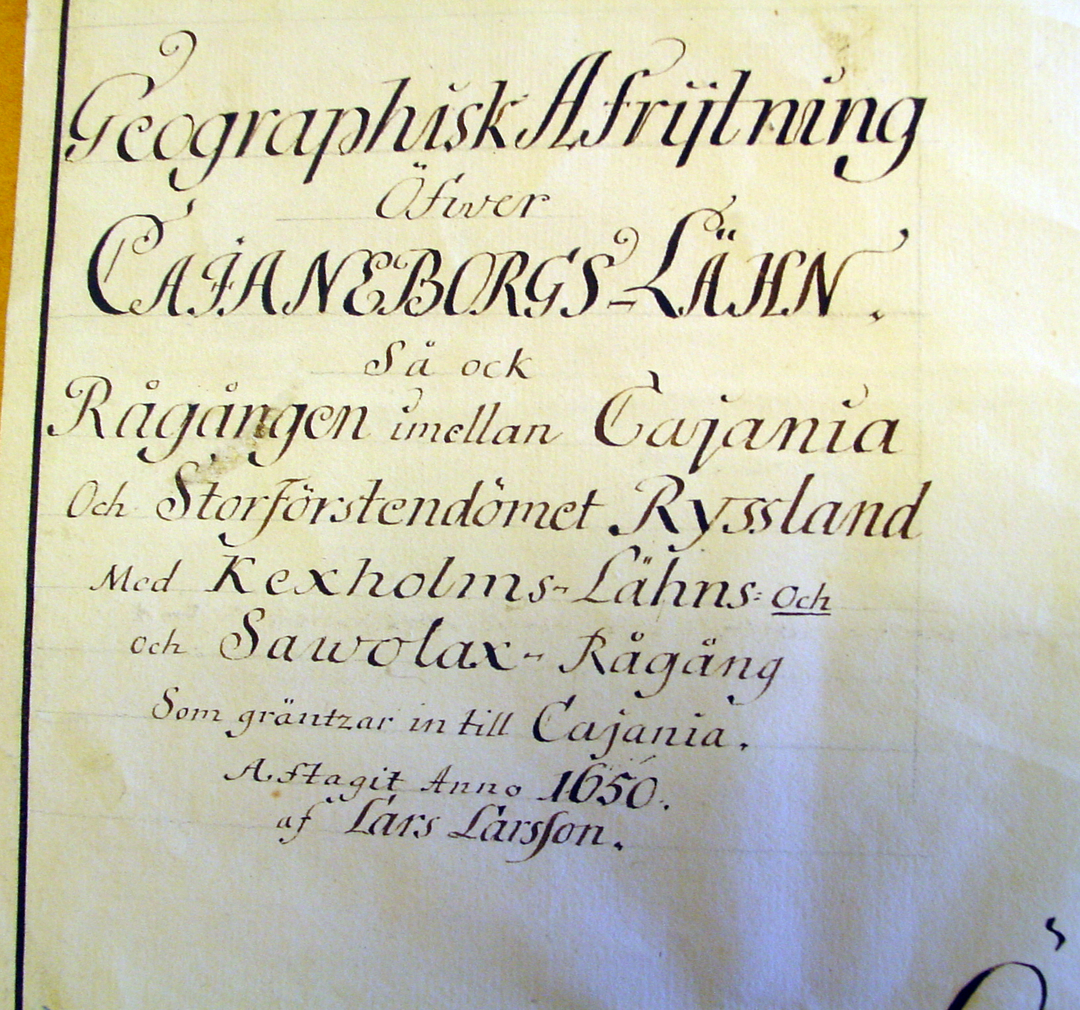 Geographisk Afrijtning
Öfwer
CAJANEBORGS-LÄHN.
Så ock
Rågången imellan Cajania
Och Storförstendömet Ryssland
Med Kexholms-Lähns: och
och Sawolax-Rågång
Som gräntzar in till Cajania.
Aftagit Anno 1650.
af Lars Larsson.